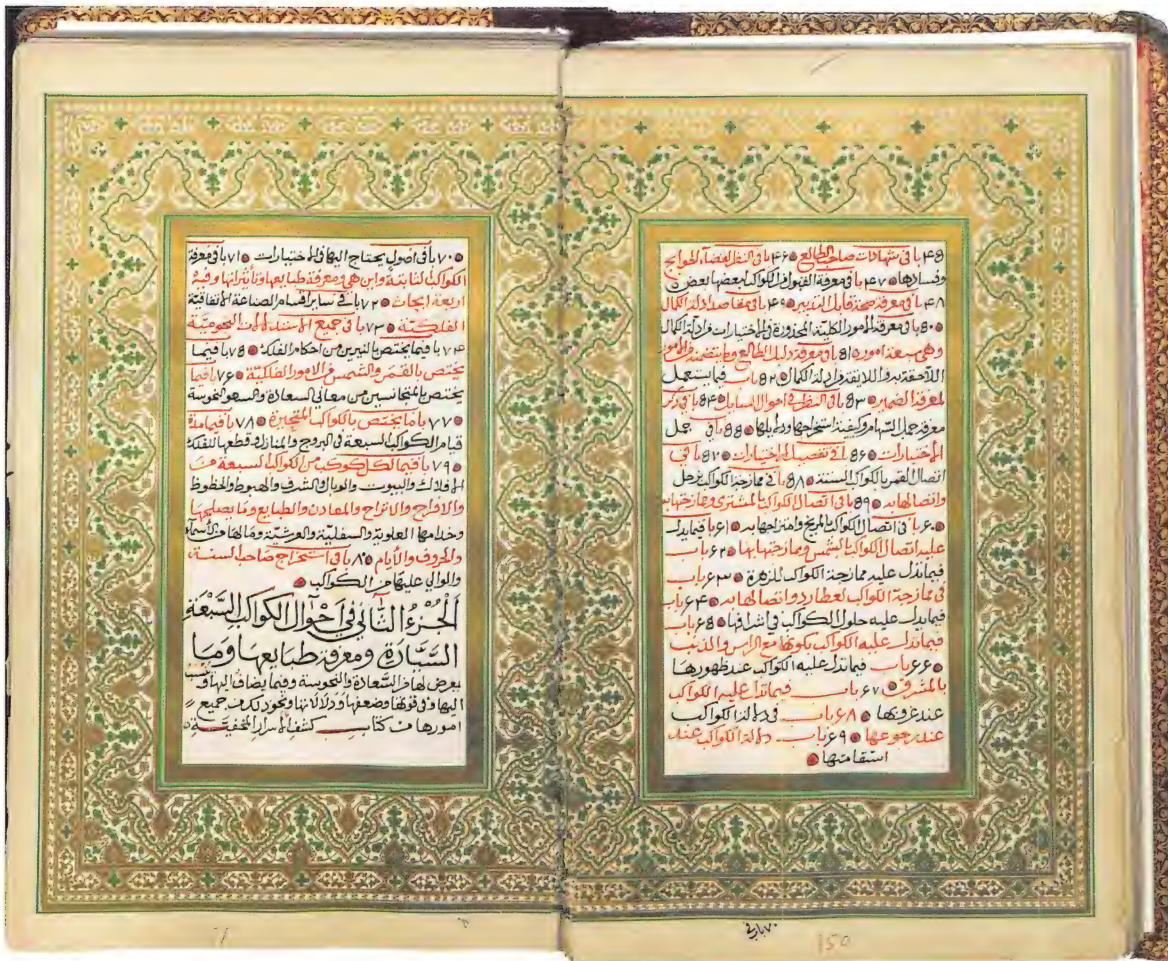 ۴۵ باب فى شهادات صاحب الطالع ۴۶ باب فى النظر لقضاء الحوايج
وفسادها ۴۷ باب فى معرفة القبول فى الكواكب لبعضها بعض
۴۸ باب فى معرفة صحة قابل التدبير ۴۹ باب فى مقاصد ادلة الكمال
۵۰ باب فى معرفة الامور الكلية المحذورة فى الاختيارات فى ادلة الكمال
وهى سبعة امور ۵۱ باب فى معرفة دليل الطالع وما يتضمنه من الامور
اللاحقة به واللايقة فى ادلة الكمال ۵۲ باب فيما يستعمل
لمعرفة الضمير ۵۳ باب فى النظر فى احوال المسايل ۵۴ باب فى ذكر
معرفة جمل السهام وكيفية استخراجها ودلايلها ۵۵ باب فى جمل
الاختيارات ۵۶ باب فى تفصيل الاختيارات ۵۷ باب فى
اتصال القمر بالكواكب الستة ۵۸ باب فى ممازجة الكواكب لزحل
واتصالها به ۵۹ باب فى اتصال الكواكب بالمشترى وممازجتها به
۶۰ باب فى اتصال الكواكب بالمريخ وامتزاجها به ۶۱ باب فيما يدل
عليه اتصال الكواكب بالشمس وممازجتها بها ۶۲ باب
فيما تدل عليه ممازجة الكواكب للزهرة ۶۳ باب
فى ممازجة الكواكب لعطارد واتصالها به ۶۴ باب
فيما يدل عليه حلول الكواكب فى اشرافها ۶۵ باب
فيما تدل عليه الكواكب بكونها مع الراس والذنب
۶۶ باب فيما تدل عليه الكواكب عند ظهورها
بالمشرق ۶۷ باب فيما تدل عليه الكواكب
عند غروبها ۶۸ باب فى دلالة الكواكب
عند رجوعها ۶۹ باب دلالة الكواكب عند
استقامتها
۷۰ باب فى
150
۷۰ باب فى اصول يحتاج اليها فى الاختيارات ۷۱ باب فى معرفة
الكواكب الثابتة واين هى ومعرفة طبايعها وتاثيراتها وفيه
اربعة ابحاث ۷۲ باب فى ساير اقسام الصناعة الاتفاقية
الفلكية ۷۳ باب فى جميع الاستدلالات النجومية
۷۴ باب فيما يختص بالنيرين من احكام الفلك ۷۵ باب فيما
يختص بالقمر والشمس من الامور الفلكية ۷۶ باب فيما
يختص بالمتجانسين من معانى السعادة والسعو النحوسة
۷۷ باب ما يختص بالكواكب المتحيرة ۷۸ باب فيما مدة
قيام الكواكب السبعة فى البروج والمنازل وقطعها للفلك
۷۹ باب فيما لكل كوكب من الكواكب السبعة من
الافلاك والبيوت والوبال والشرف والهبوط والحظوظ
والافراح والاتراح والمعادن والطبايع وما يصلح لها
وخدامها العلوية والسفلية والعرشية وما لها من الاسماء
والحروف والايام ۸۰ باب فى استخراج صاحب السنة
والوالى عليها من الكواكب
الجزء الثانى فى احوال الكواكب السبعة
السيارة ومعرفة طبايعها وما
يعرض لها من السعادة والنحوسة وفيما يضاف اليها وينسب
اليها وفى قوتها وضعفها ودلالاتها ونحو ذلك من جميع
امورها من كتاب كشف الاسرار المخفية